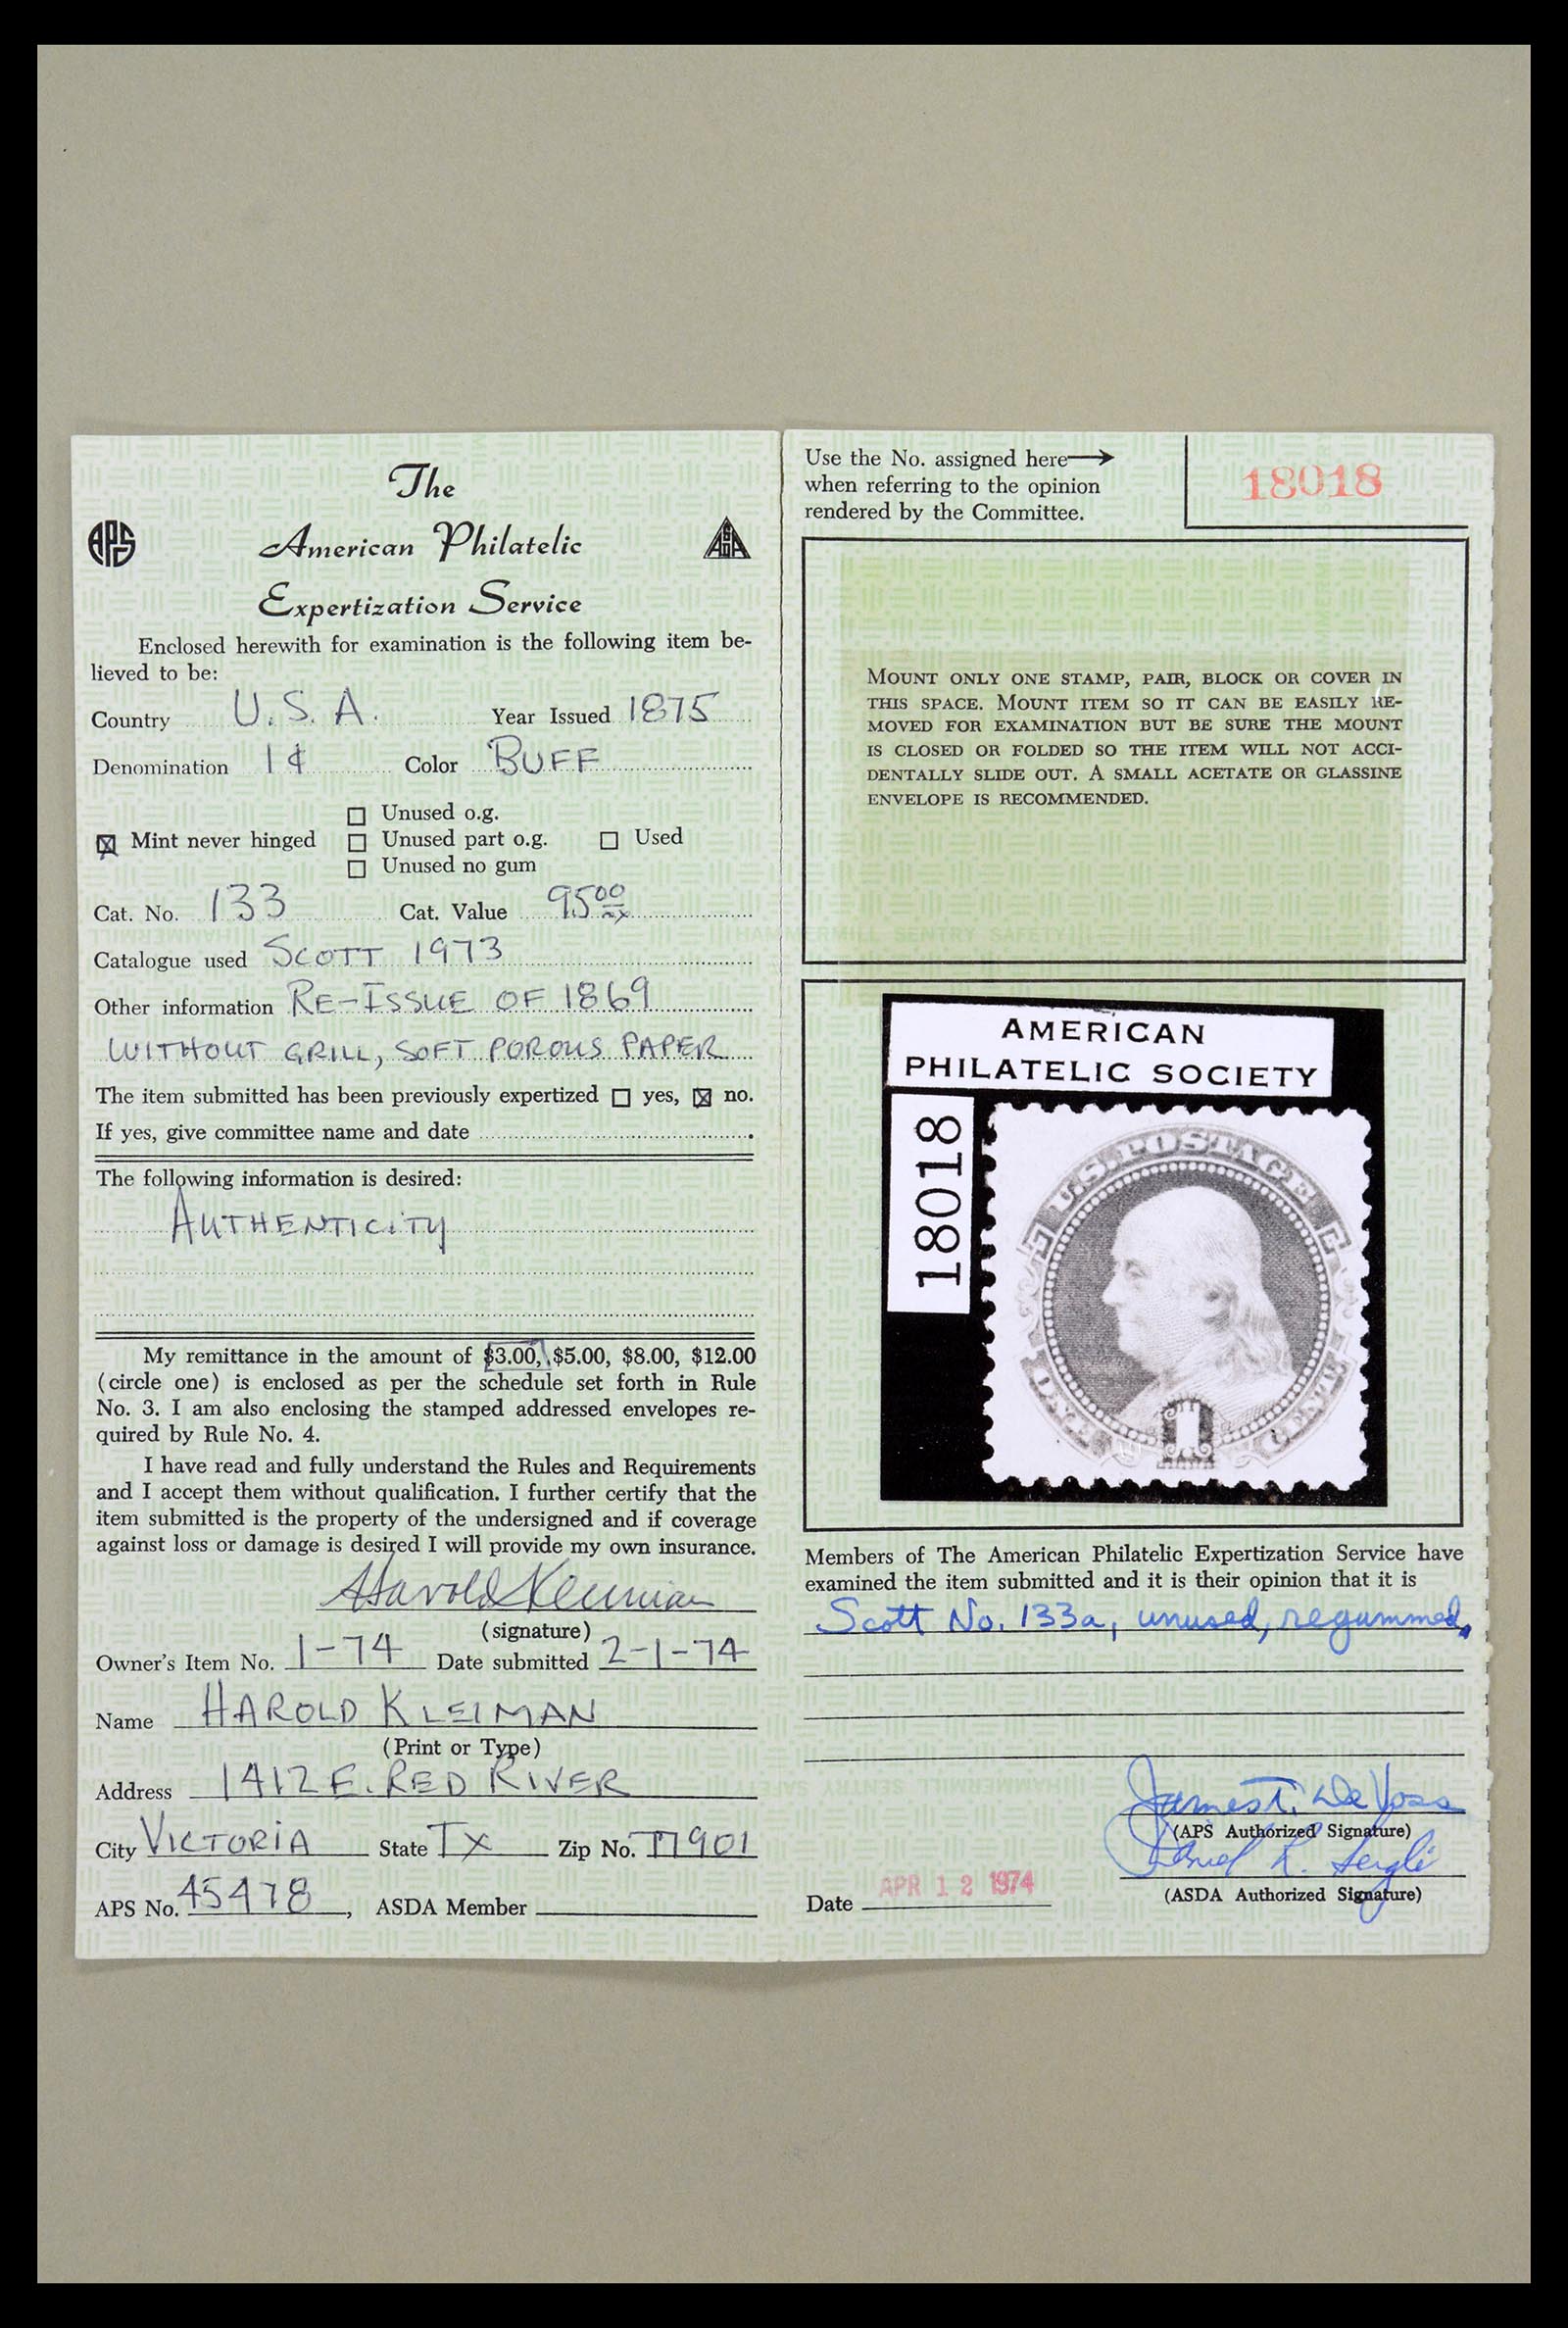 The
American Philatelic
Expertization Service
APS
ASDA
Enclosed herewith for examination is the following item be-
lieved to be:
Country U.S.A. Year Issued 1875
Denomination 1¢ Color BUFF
☐ Unused o.g.
☒ Mint never hinged ☐ Unused part o.g. ☐ Used
☐ Unused no gum
Cat. No. 133 Cat. Value 95.00
Catalogue used SCOTT 1973
Other information RE-ISSUE OF 1869
WITHOUT GRILL, SOFT POROUS PAPER
The item submitted has been previously expertized ☐ yes, ☒ no.
If yes, give committee name and date
The following information is desired:
AUTHENTICITY
My remittance in the amount of $3.00, $5.00, $8.00, $12.00
(circle one) is enclosed as per the schedule set forth in Rule
No. 3. I am also enclosing the stamped addressed envelopes re-
quired by Rule No. 4.
I have read and fully understand the Rules and Requirements
and I accept them without qualification. I further certify that the
item submitted is the property of the undersigned and if coverage
against loss or damage is desired I will provide my own insurance.
Harold Kleiman
(signature)
Owner's Item No. 1-74 Date submitted 2-1-74
Name HAROLD KLEIMAN
(Print or Type)
Address 1412 E. RED RIVER
City VICTORIA State TX Zip No. 77901
APS No. 45478, ASDA Member
Use the No. assigned here→
when referring to the opinion
rendered by the Committee.
18018
MOUNT ONLY ONE STAMP, PAIR, BLOCK OR COVER IN
THIS SPACE. MOUNT ITEM SO IT CAN BE EASILY RE-
MOVED FOR EXAMINATION BUT BE SURE THE MOUNT
IS CLOSED OR FOLDED SO THE ITEM WILL NOT ACCI-
DENTALLY SLIDE OUT. A SMALL ACETATE OR GLASSINE
ENVELOPE IS RECOMMENDED.
HAMMERMILL SENTRY SAFETY
AMERICAN
PHILATELIC SOCIETY
18018
U.S. POSTAGE
ONE 1 CENT
Members of The American Philatelic Expertization Service have
examined the item submitted and it is their opinion that it is
Scott No. 133a, unused, regummed.
James T. DeVoss
(APS Authorized Signature)
Date APR 12 1974
(ASDA Authorized Signature)